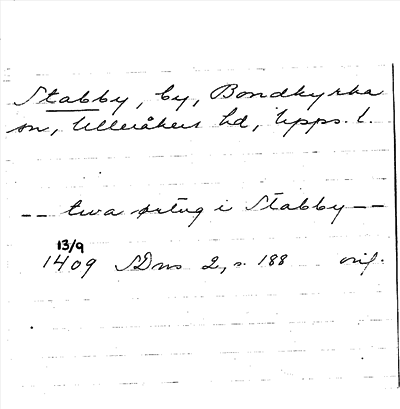 Stabby, by, Bondkyrka
sn, Ulleråkers hd, Upps. l.
-- twa ørtug i Stabby --
13/9
1409 SDns 2, s. 188 orig.